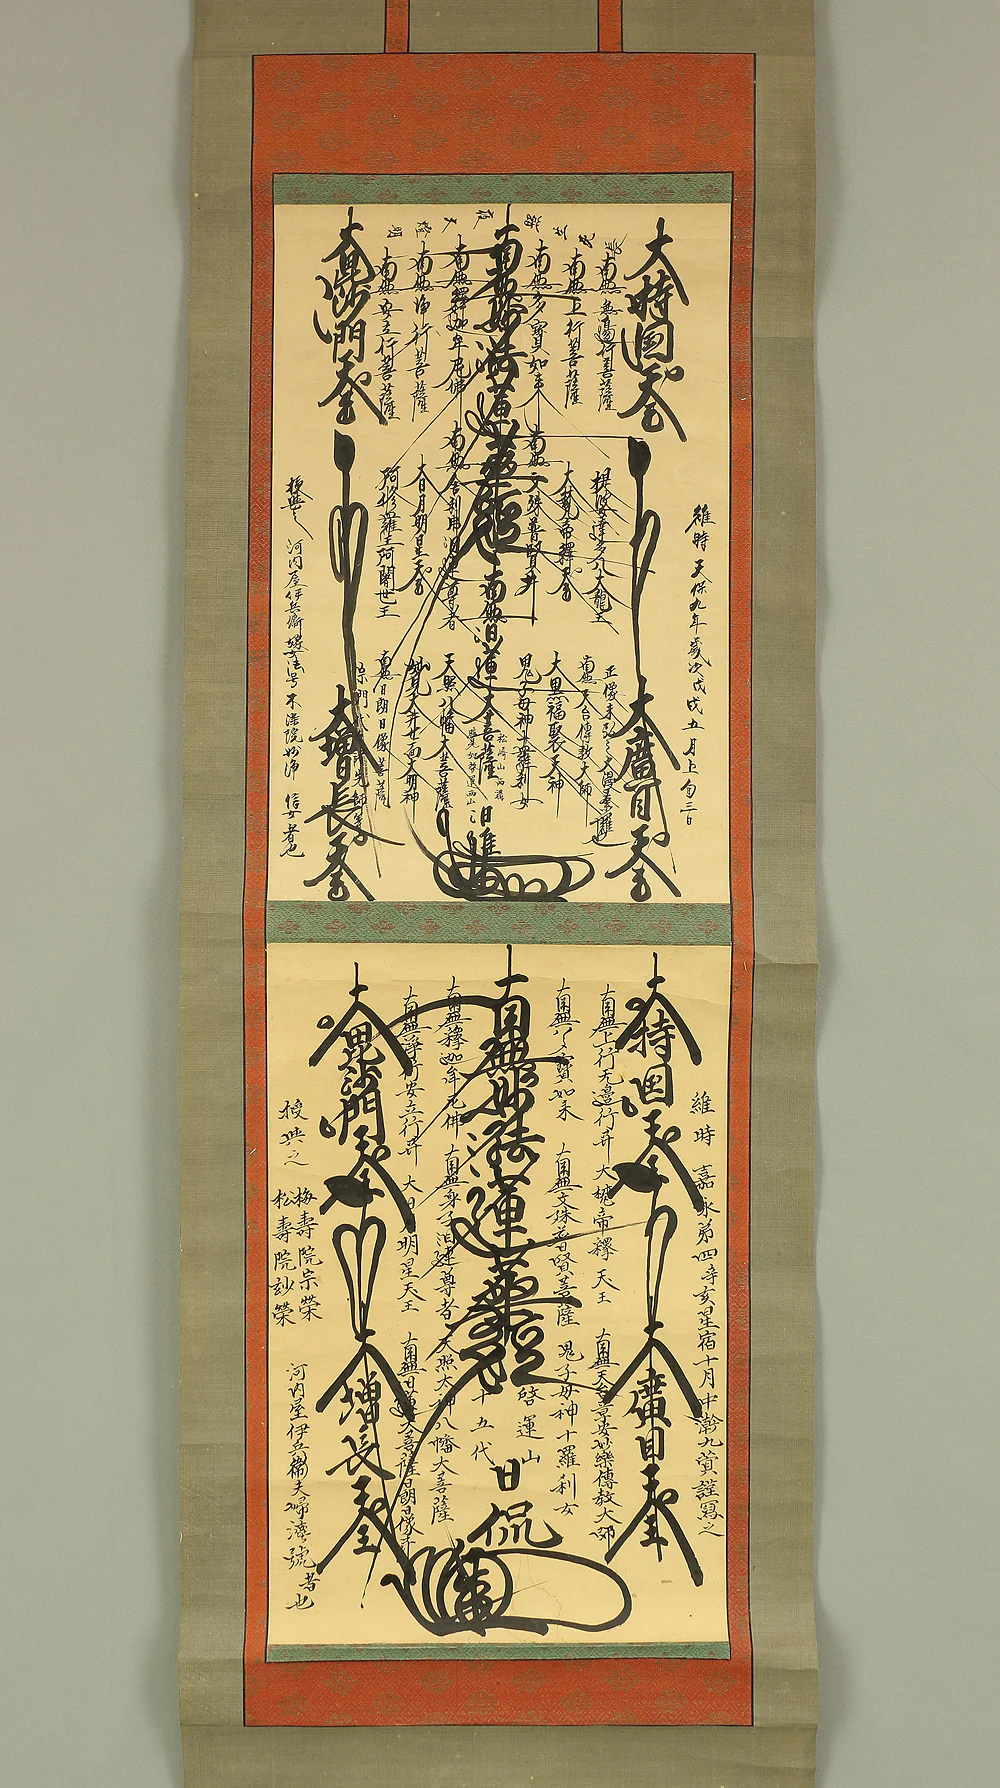 大持国天王
南無無邊行菩薩
南無上行菩薩
南無多寳如来
南無妙法蓮華経
南無釋迦牟尼佛
南無浄行菩薩
南無安立行菩薩
大毘沙門天王
維時 天保九年歳次戊戌五月上旬三日
提婆達多八大龍王
大梵帝釋天王
南無文殊普賢井
南無日蓮大菩薩
南無舎利弗目連尊者
大日月明星天王
阿修羅王阿闍世王
南無天台傳教大師
大黒福聚天神
鬼子母神十羅刹女
天照八幡大菩薩
南無日朗日像菩薩
大廣目天王
大増長天王
授與之 河内屋伊兵衛
信女者也
維時 嘉永第四 亥星宿十月中澣九蓂謹寫之
大持国天王
南無上行无邊行井 大梵帝釋天王
南無天台章安妙樂傳教大師
南無多寳如来 南無文殊普賢菩薩 鬼子母神十羅刹女
南無妙法蓮華経
十五代
啓運山
日侃
南無釋迦牟尼佛 南無身子目連尊者 天照太神八幡大菩薩
南無浄行安立行井 大日月明星天王
南無日蓮大菩薩日朗日像井
大毘沙門天王
大廣目天王
大増長天王
授與之
梅壽院宗榮
松壽院妙榮
河内屋伊兵衛夫婦法號者也